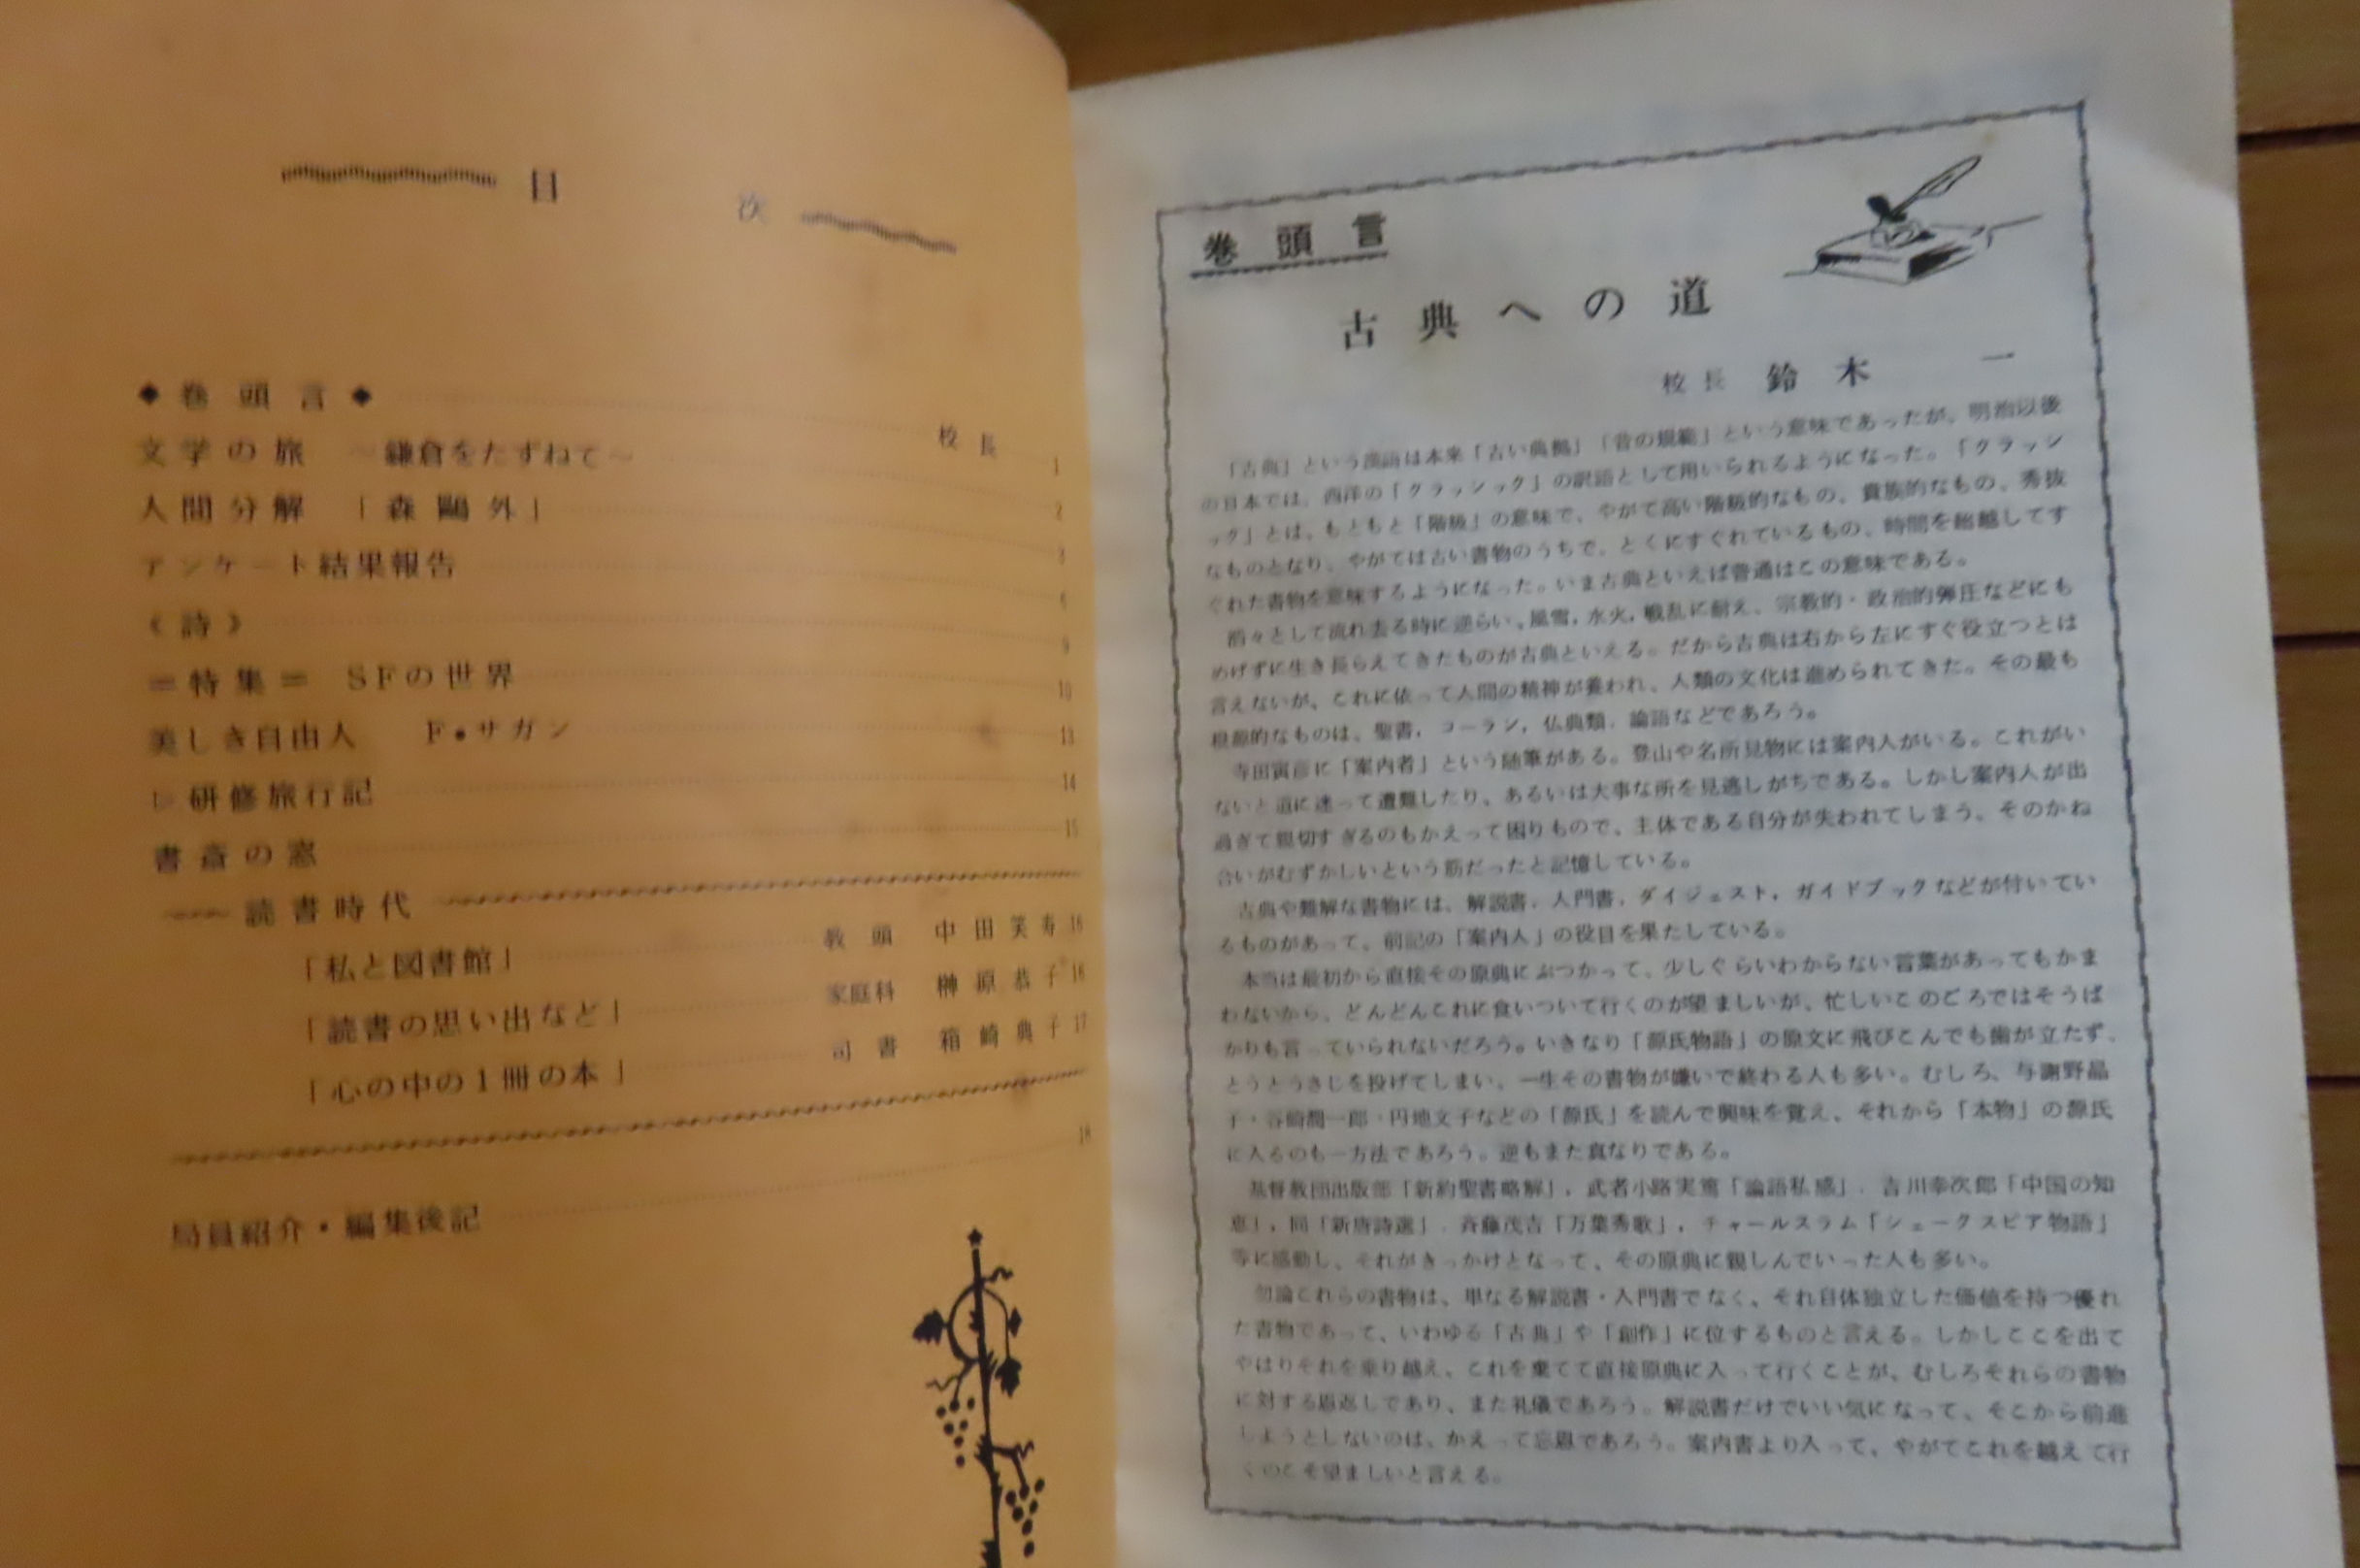 目 次
◆巻頭言◆ 校長 1
文学の旅 ～鎌倉をたずねて～ 2
人間分解 「森鷗外」 3
アンケート結果報告 6
《詩》 9
＝特集＝ SFの世界 10
美しき自由人 F・サガン 13
▷研修旅行記 14
書斎の窓 15
読書時代
「私と図書館」 教頭 中田笑寿 16
「読書の思い出など」 家庭科 榊原恭子 16
「心の中の1冊の本」 司書 箱崎典子 17
局員紹介・編集後記 18
巻頭言
古典への道
校長 鈴木 一
「古典」という漢語は本来「古い典籍」「昔の規範」という意味であったが、明治以後
の日本では、西洋の「クラッシック」の訳語として用いられるようになった。「クラッシ
ック」とは、もともと「階級」の意味で、やがて高い階級的なもの、貴族的なもの、秀抜
なものとなり、やがては古い書物のうちで、とくにすぐれているもの、時間を超越してす
ぐれた書物を意味するようになった。いま古典といえば普通はこの意味である。
滔々として流れ去る時に逆らい、風雪，水火，戦乱に耐え、宗教的・政治的弾圧などにも
めげずに生き長らえてきたものが古典といえる。だから古典は右から左にすぐ役立つとは
言えないが、これに依って人間の精神が養われ、人類の文化は進められてきた。その最も
根源的なものは、聖書，コーラン，仏典類，論語などであろう。
寺田寅彦に「案内者」という随筆がある。登山や名所見物には案内人がいる。これがい
ないと道に迷って遭難したり、あるいは大事な所を見逃しがちである。しかし案内人が出
過ぎて親切すぎるのもかえって困りもので、主体である自分が失われてしまう、そのかね
合いがむずかしいという筋だったと記憶している。
古典や難解な書物には、解説書，入門書，ダイジェスト，ガイドブックなどが付いてい
るものがあって、前記の「案内人」の役目を果たしている。
本当は最初から直接その原典にぶつかって、少しぐらいわからない言葉があってもかま
わないから、どんどんこれに食いついて行くのが望ましいが、忙しいこのごろではそうば
かりも言っていられないだろう。いきなり「源氏物語」の原文に飛びこんでも歯が立たず、
とうとうさじを投げてしまい、一生その書物が嫌いで終わる人も多い。むしろ、与謝野晶
子・谷崎潤一郎・円地文子などの「源氏」を読んで興味を覚え、それから「本物」の源氏
に入るのも一方法であろう。逆もまた真なりである。
基督教団出版部「新約聖書略解」，武者小路実篤「論語私感」，吉川幸次郎「中国の知
恵」，同「新唐詩選」，斉藤茂吉「万葉秀歌」，チャールスラム「シェークスピア物語」
等に感動し、それがきっかけとなって、その原典に親しんでいった人も多い。
勿論これらの書物は、単なる解説書・入門書でなく、それ自体独立した価値を持つ優れ
た書物であって、いわゆる「古典」や「創作」に位するものと言える。しかしここを出て
やはりそれを乗り越え、これを棄てて直接原典に入って行くことが、むしろそれらの書物
に対する恩返しであり、また礼儀であろう。解説書だけでいい気になって、そこから前進
しようとしないのは、かえって忘恩であろう。案内書より入って、やがてこれを越えて行
くのこそ望ましいと言える。